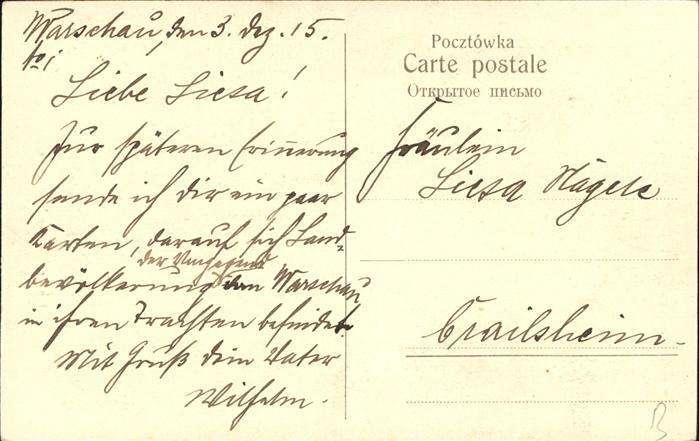 Warschau, den 3. Dez. 15.
No 1
Liebe Liesa!
Zur späteren Erinnerung
sende ich dir ein paar
Karten, darauf sich Land-
bevölkerung von Warschau
der Umgegend
in ihren Trachten befindet.
Mit Gruß dein Vater
Wilhelm.
Pocztówka
Carte postale
Открытое письмо
Fräulein
Liesa Nägele
Crailsheim.
B